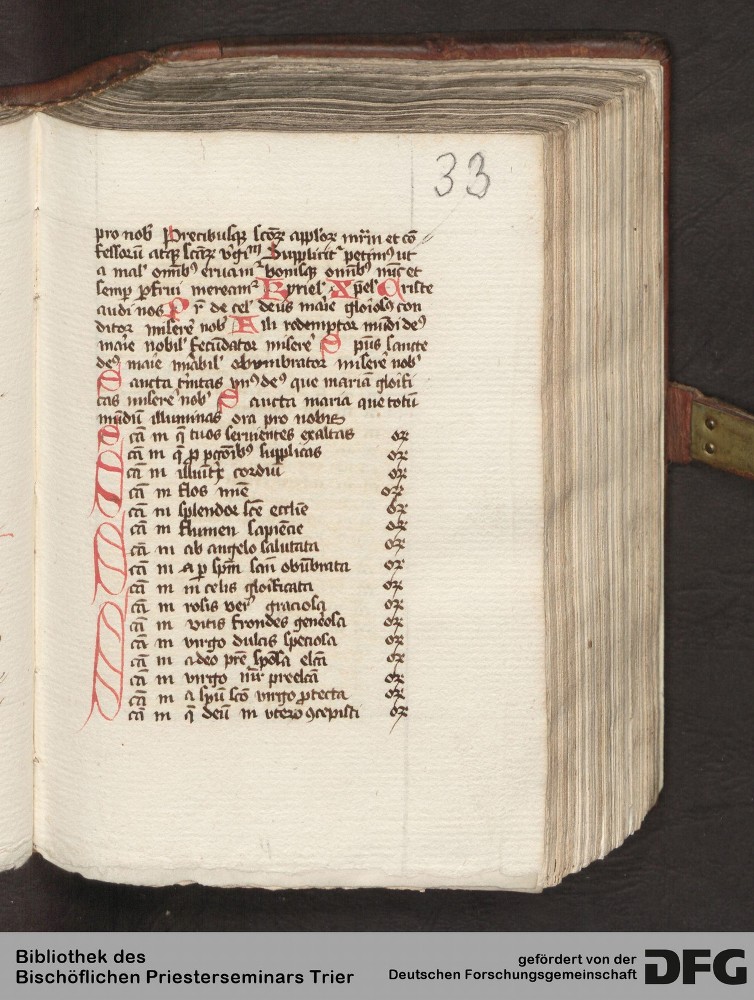 33
pro nob Precibusq scorz applorz mrm et co
fessoru atqz scorz vgim Supplicit petim ut
a mal omibz eruam bonisqz omibz nuc et
semp pfrui mereamr Kyriel Xpel Criste
audi nos Pr de cel deus marie gliosus con
ditor miserere nob Fili redemptor mudi deus
marie nobil fecudator miserere Spus sancte
deus marie mirabil obumbrator miserere nob
Sancta trinitas unus deus que mariam gloifi
cas miserere nob Sancta maria que totu
mundu illuminas ora pro nobis
Sca m q tuos seruientes exaltas orz
sca m q p pctoribz supplicas orz
sca m illuitx cordiu orz
sca m flos orz
sca m splendor sce ecclie orz
sca m flumen sapiecie orz
sca m ab angelo salutata orz
sca m a p spm scm obubrata orz
sca m in celis gloificata orz
sca m rosis ver graciosa orz
sca m vitis frondes generosa orz
sca m virgo dulcis speciosa orz
sca m a deo pre sposa elca orz
sca m virgo mr preelca orz
sca m a spu sco virgo ptecta orz
sca m q deu in vtero 9cepisti orz
Bibliothek des
Bischöflichen Priesterseminars Trier
gefördert von der
Deutschen Forschungsgemeinschaft
DFG